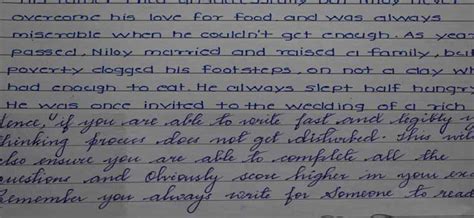 overcome his love for food and was always
miserable when he couldn't get enough. As years
passed, Niloy married and raised a family, but
poverty dogged his footsteps, on not a day wh
had enough to eat. He always slept half hungry
He was once invited to the wedding of a rich
Hence, if you are able to write fast and legibly
thinking process does not get disturbed. This will
also ensure you are able to complete all the
questions and Obviously score higher in your exa
Remember you always write for someone to read